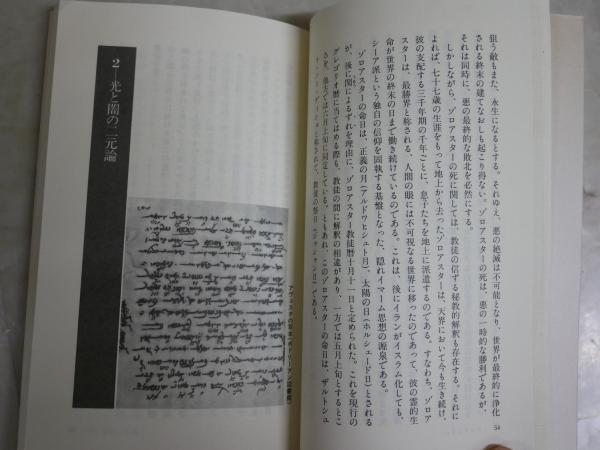 狙う敵もまた、永生になるとする。それゆえ、悪の絶滅は不可能となり、世界が最終的に浄化
される終末の建てなおしも起こり得ない。ゾロアスターの死は、悪の一時的な勝利であるが、
それは同時に、悪の最終的な敗北を必然にする。
しかしながら、ゾロアスターの死に関しては、教徒の信ずる秘教的解釈も存在する。それに
よれば、七十七歳の生涯をもって地上から去ったゾロアスターは、天界において今も生き続け、
彼の支配する三千年期の千年ごとに、息子たちを地上に派遣するのである。すなわち、ゾロア
スターは、最勝界と称される、人間の眼には不可視なる世界に移ったのであって、彼の霊的生
命が世界の終末の日まで働き続けているのである。これは、後にイランがイスラム化しても、
シーア派という独自の信仰を固執する基盤となった、隠れイマーム思想の源泉である。
ゾロアスターの命日は、正義の月(アルドワヒシュト月)、太陽の日(ホルシェード日)とされる
が、後に閏によるずれを理由に、ゾロアスター教徒暦十月十一日と定められた。これを現行の
グレゴリオ暦に当てはめる際も、教徒の間に解釈の相違があり、一方では五月上旬とするとこ
ろを、他方では六月上旬に同定している。ともあれ、このゾロアスターの命日は、ザルトシュ
と称されて、教徒の祭日(ジャシャン日)である。
54
2
光と闇の二元論
アヴェスタの写本